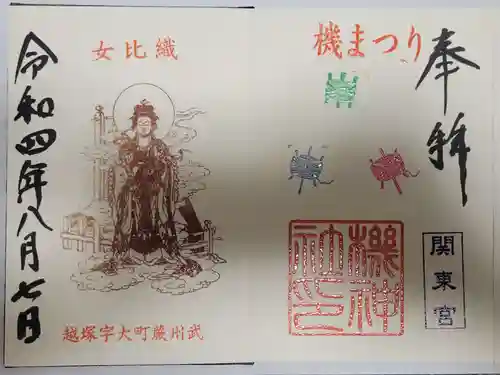 奉拝
機まつり
関東宮
機神
織比女
武州蕨町大字塚越
令和四年八月七日